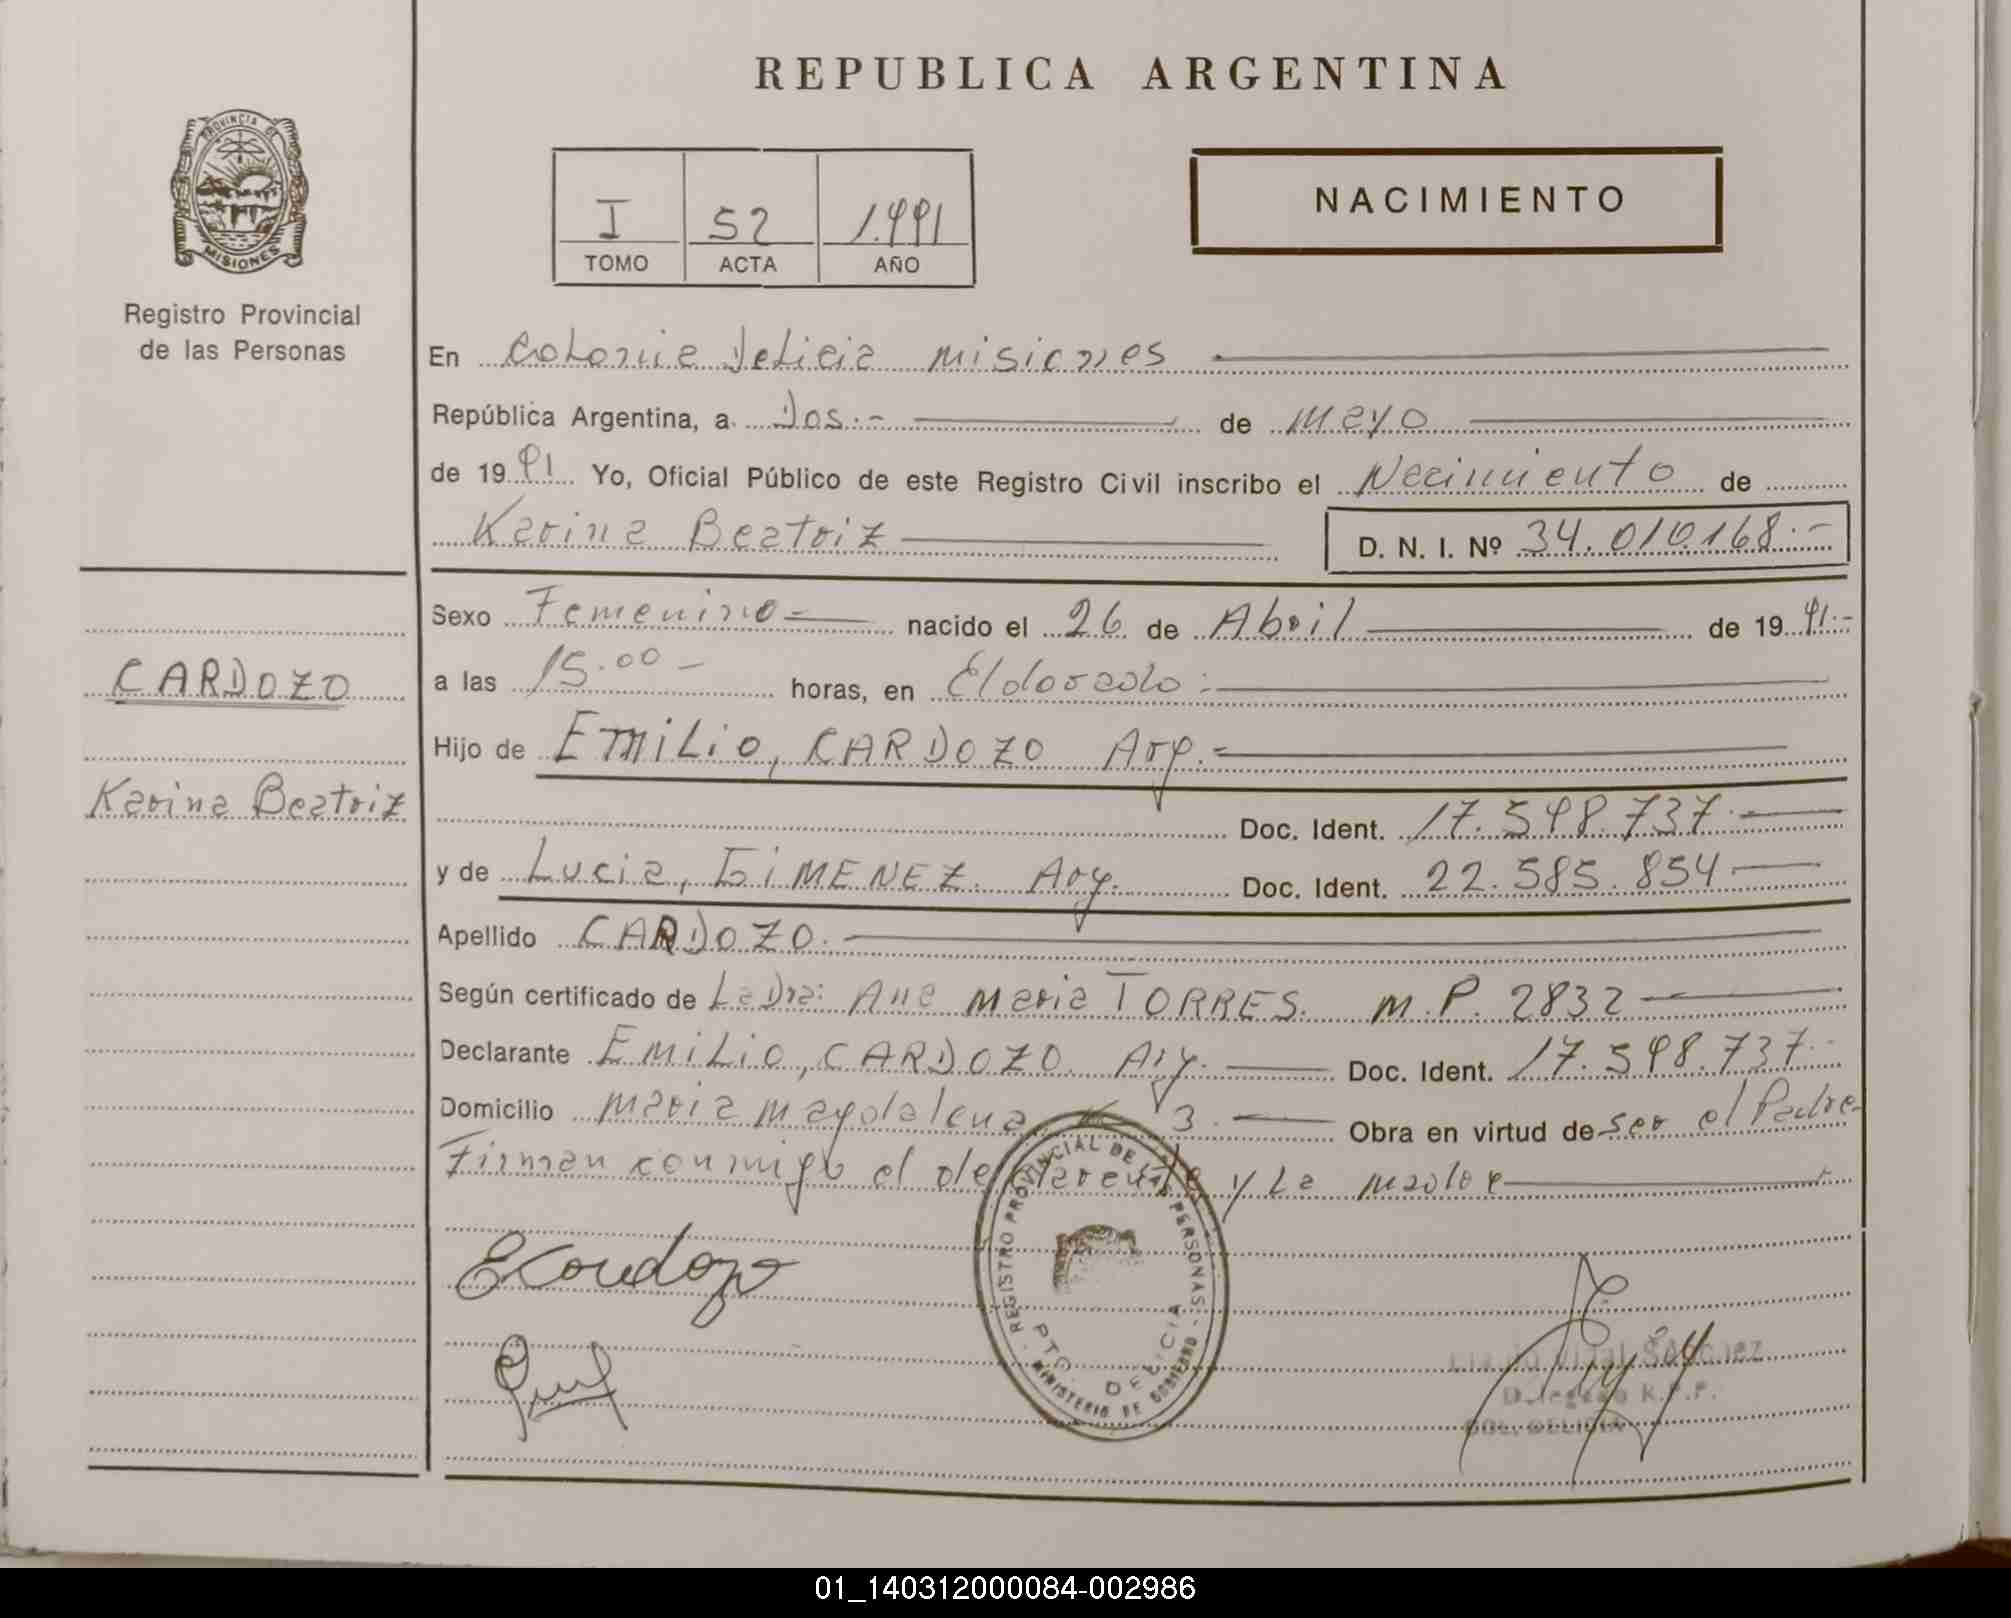 REPUBLICA ARGENTINA
PROVINCIA DE
MISIONES
Registro Provincial
de las Personas
I 52 1.991
TOMO ACTA AÑO
NACIMIENTO
En Colonia Delicia Misiones
República Argentina, a Dos.- de Mayo
de 1991 Yo, Oficial Público de este Registro Civil inscribo el Nacimiento de
Karina Beatriz D. N. I. Nº 34.010.168.-
Sexo Femenino nacido el 26 de Abril de 1991.-
CARDOZO
a las 15.00 horas, en Eldorado:
Hijo de EMILIO, CARDOZO Arg.
Karina Beatriz
Doc. Ident. 17.598.737.
y de Lucia, GIMENEZ. Arg. Doc. Ident. 22.585.854
Apellido CARDOZO.
Según certificado de La Dra: Ana Maria TORRES. M.P. 2832
Declarante EMILIO, CARDOZO. Arg. Doc. Ident. 17.598.737.
Domicilio Maria Magdalena 3. Obra en virtud de ser el Padre
Firman conmigo el declarante y La madre
REGISTRO PROVINCIAL DE LAS PERSONAS
PTO. DELICIA
MINISTERIO DE GOBIERNO
ECardozo
Vidal Sanchez
Delegado R.P.P.
COL. DELICIA
01_140312000084-002986